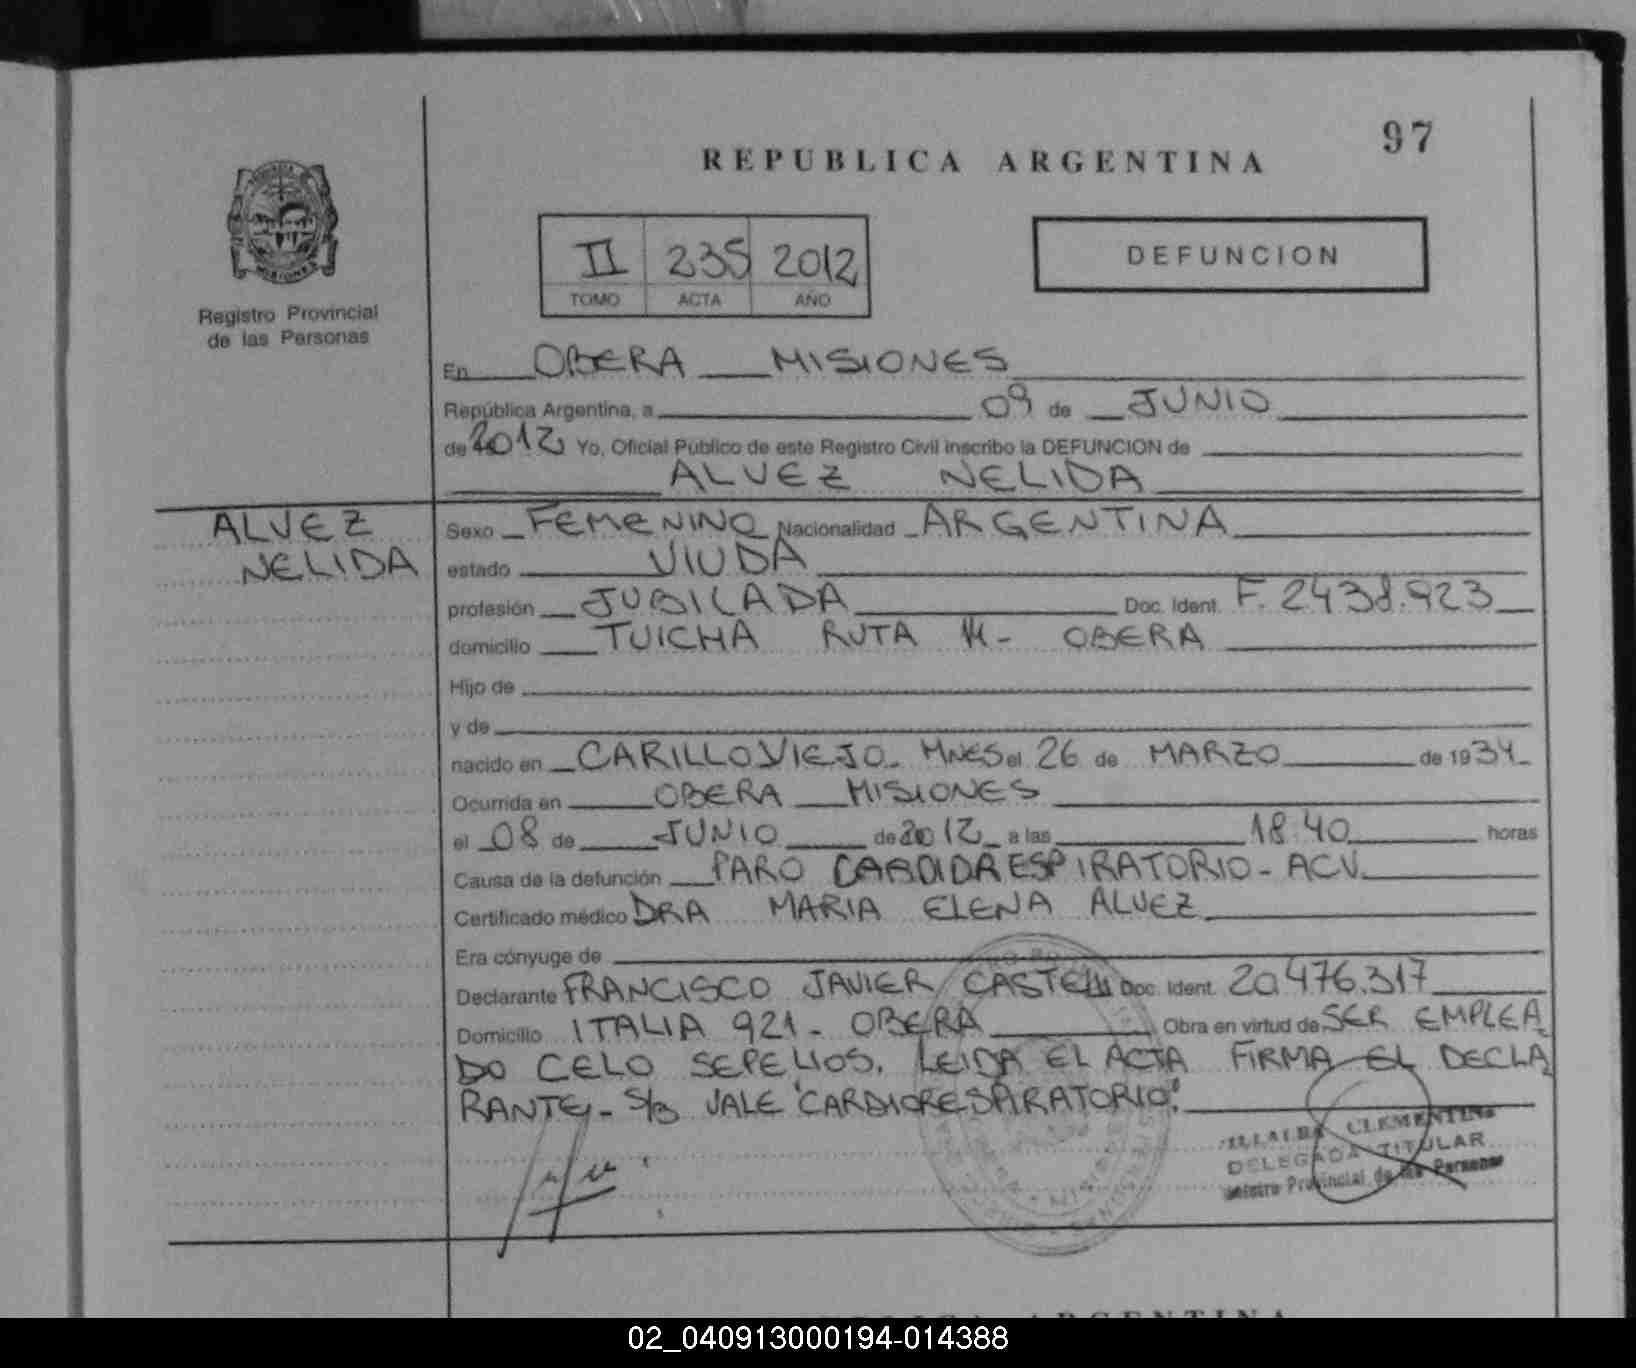 97
REPUBLICA ARGENTINA
II 235 2012
TOMO ACTA AÑO
DEFUNCION
Registro Provincial
de las Personas
En OBERA MISIONES
República Argentina, a 09 de JUNIO
de 2012 Yo, Oficial Público de este Registro Civil inscribo la DEFUNCION de
ALVEZ NELIDA
ALVEZ
NELIDA
Sexo FEMENINO Nacionalidad ARGENTINA
estado VIUDA
profesión JUBILADA Doc. Ident. F. 2438.923
domicilio TUICHA RUTA 14- OBERA
Hijo de
y de
nacido en CARILLO VIEJO. MNES el 26 de MARZO de 1934
Ocurrida en OBERA MISIONES
el 08 de JUNIO de 2012 a las 18:40 horas
Causa de la defunción PARO CARDIDRESPIRATORIO - ACV
Certificado médico DRA MARIA ELENA ALVEZ
Era cónyuge de
Declarante FRANCISCO JAVIER Doc. Ident. 20.476.317
Domicilio ITALIA 921 - OBERA Obra en virtud de SER EMPLEA
DO CELO SEPELIOS. LEIDA EL ACTA FIRMA EL DECLA
RANTE - S/B VALE "CARDIORESPIRATORIO".
CLEMENTINA
DELEGADA TITULAR
Provincial de las Personas
MISIONES
REPUBLICA ARGENTINA
02_040913000194-014388